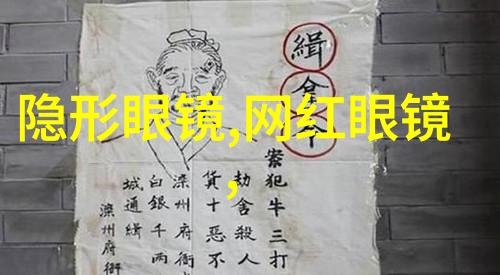 隐形眼镜,网红眼镜
,
緝拿令
案犯牛三打
劫舍殺人
貨十恶不
滦州府衙
白銀千两
城通緝
滦州府衙